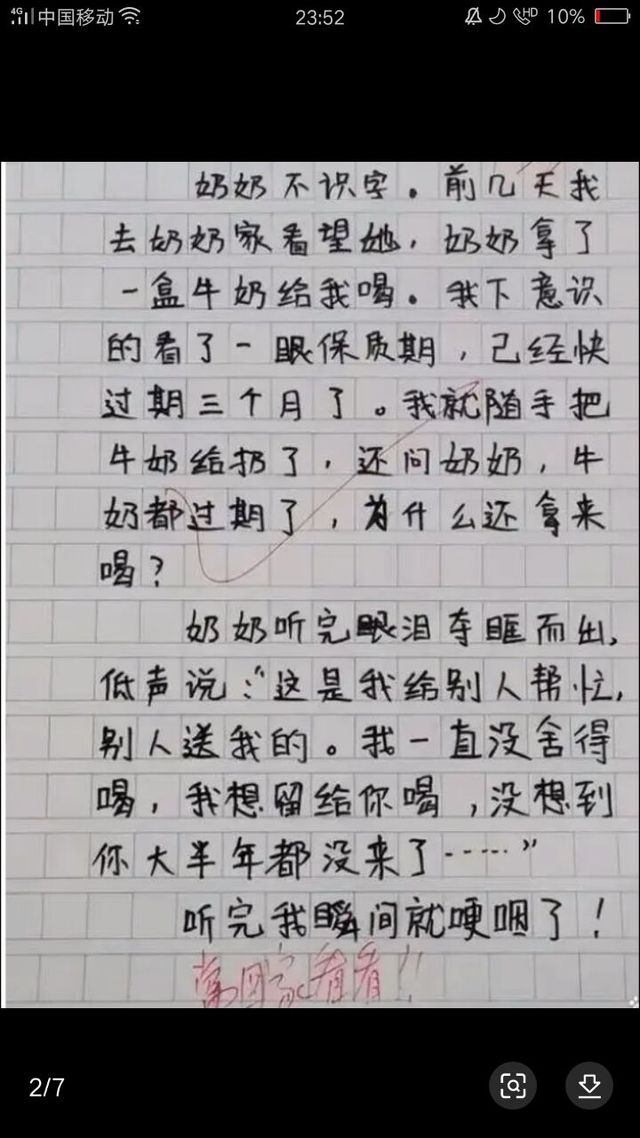 4G 中国移动 23:52 HD 10%
奶奶不识字。前几天我
去奶奶家看望她，奶奶拿了
一盒牛奶给我喝。我下意识
的看了一眼保质期，已经快
过期三个月了。我就随手把
牛奶给扔了，还问奶奶，牛
奶都过期了，为什么还拿来
喝？
奶奶听完眼泪夺眶而出，
低声说：“这是我给别人帮忙，
别人送我的。我一直没舍得
喝，我想留给你喝，没想到
你大半年都没来了……”
听完我瞬间就哽咽了！
常回家看看！！
2/7